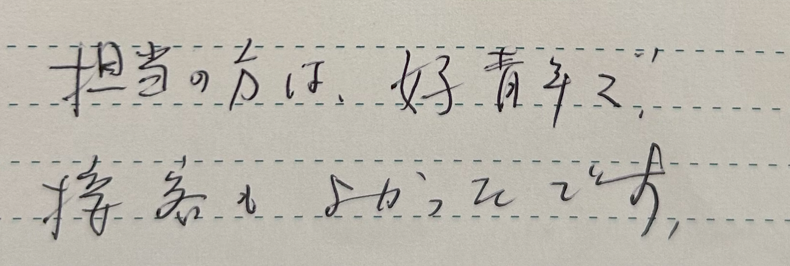 担当の方は、好青年で、
接客もよかったです、